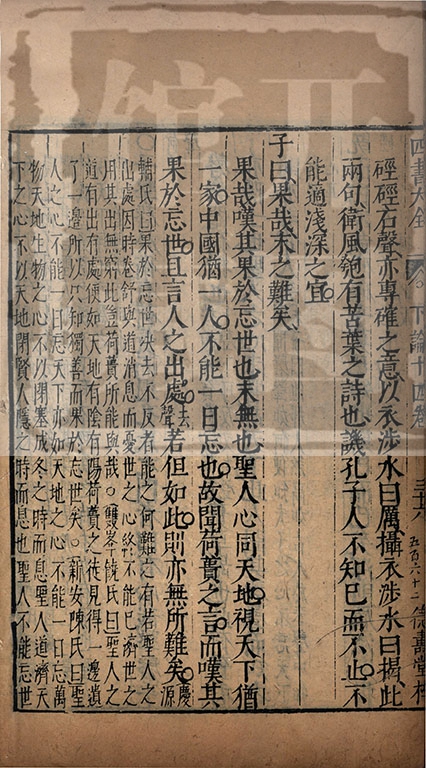 四書大全 下論十四卷 三十八 五百六十二 德壽堂梓
硜硜石聲亦專確之意以衣涉水曰厲攝衣涉水曰揭此
兩句衛風匏有苦葉之詩也譏孔子人不知已而不止不
能適淺深之宜
子曰果哉末之難矣
果哉嘆其果於忘世也末無也聖人心同天地視天下猶
一家中國猶一人不能一日忘也故聞荷蕢之言而嘆其
果於忘世且言人之出處去聲若但如此則亦無所難矣慶源
輔氏曰果於忘世決去不反者能之何難之有若聖人之
出處因時卷舒與道消息而憂世之心終不能已濟世之
用其出無窮此豈荷蕢所能與哉○雙峯饒氏曰聖人之
道有出有處便如天地有陰有陽荷蕢之徒見得一邊遺
了一邊所以只知獨善而果於忘世矣○新安陳氏曰聖
人之心不能一日忘天下亦如天地之心不能一日忘萬
物天地生物之心不以閉塞成冬之時而息聖人道濟天
下之心不以天地閉賢人隱之時而息也聖人不能忘世